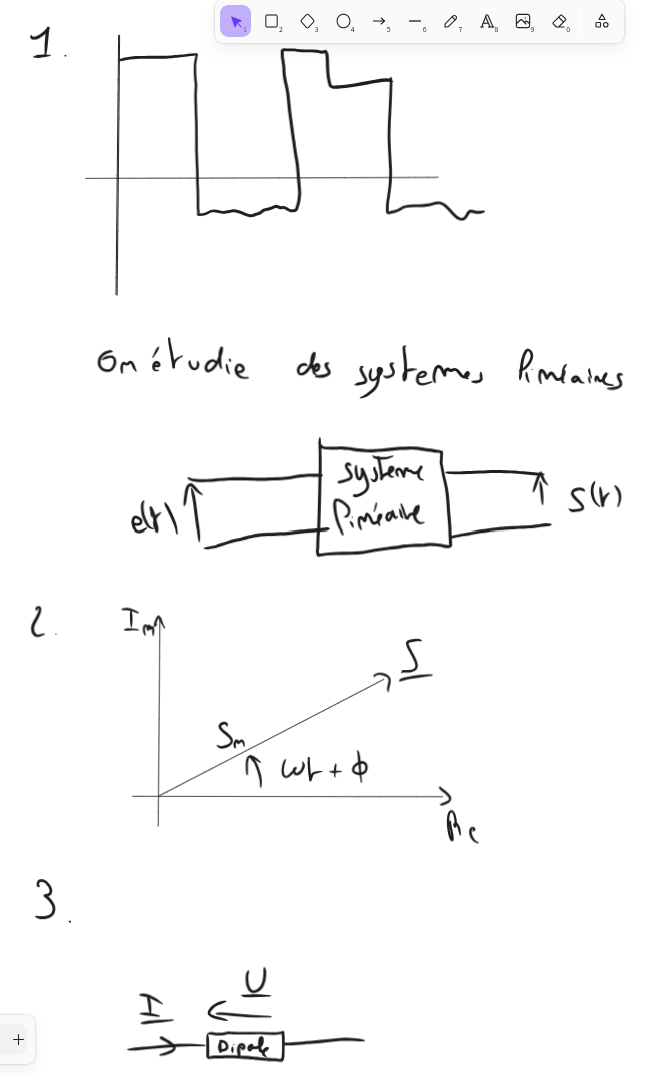 1.
On étudie des systemes linéaires
systeme
linéaire
e(t)
S(t)
2.
Im
S
Sm
ωt + ϕ
Re
3.
U
I
Dipole